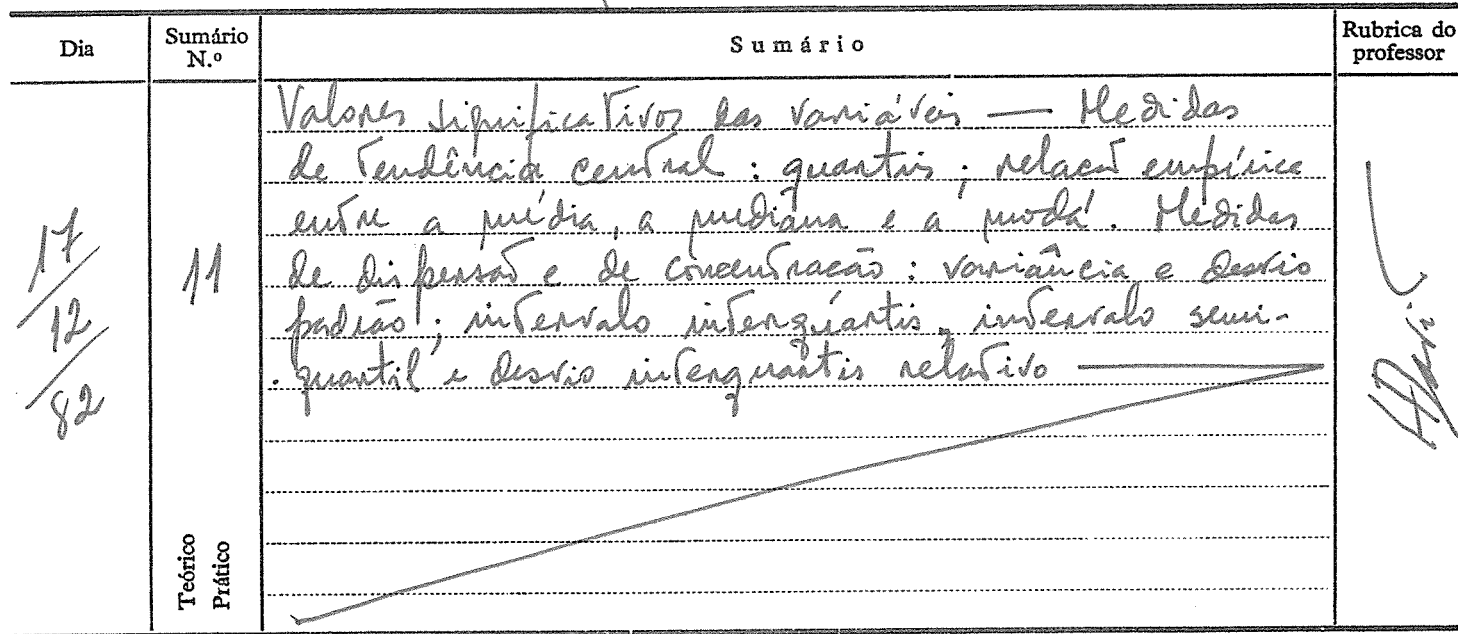 Dia
Sumário
N.º
Sumário
Rubrica do
professor
17
12
82
11
Teórico
Prático
Valores significativos das variáveis — Medidas
de tendência central : quantis ; relação empírica
entre a média, a mediana e a moda. Medidas
de dispersão e de concentração : variância e desvio
padrão ; intervalo interquantis, intervalo semi-
quantil e desvio interquantis relativo